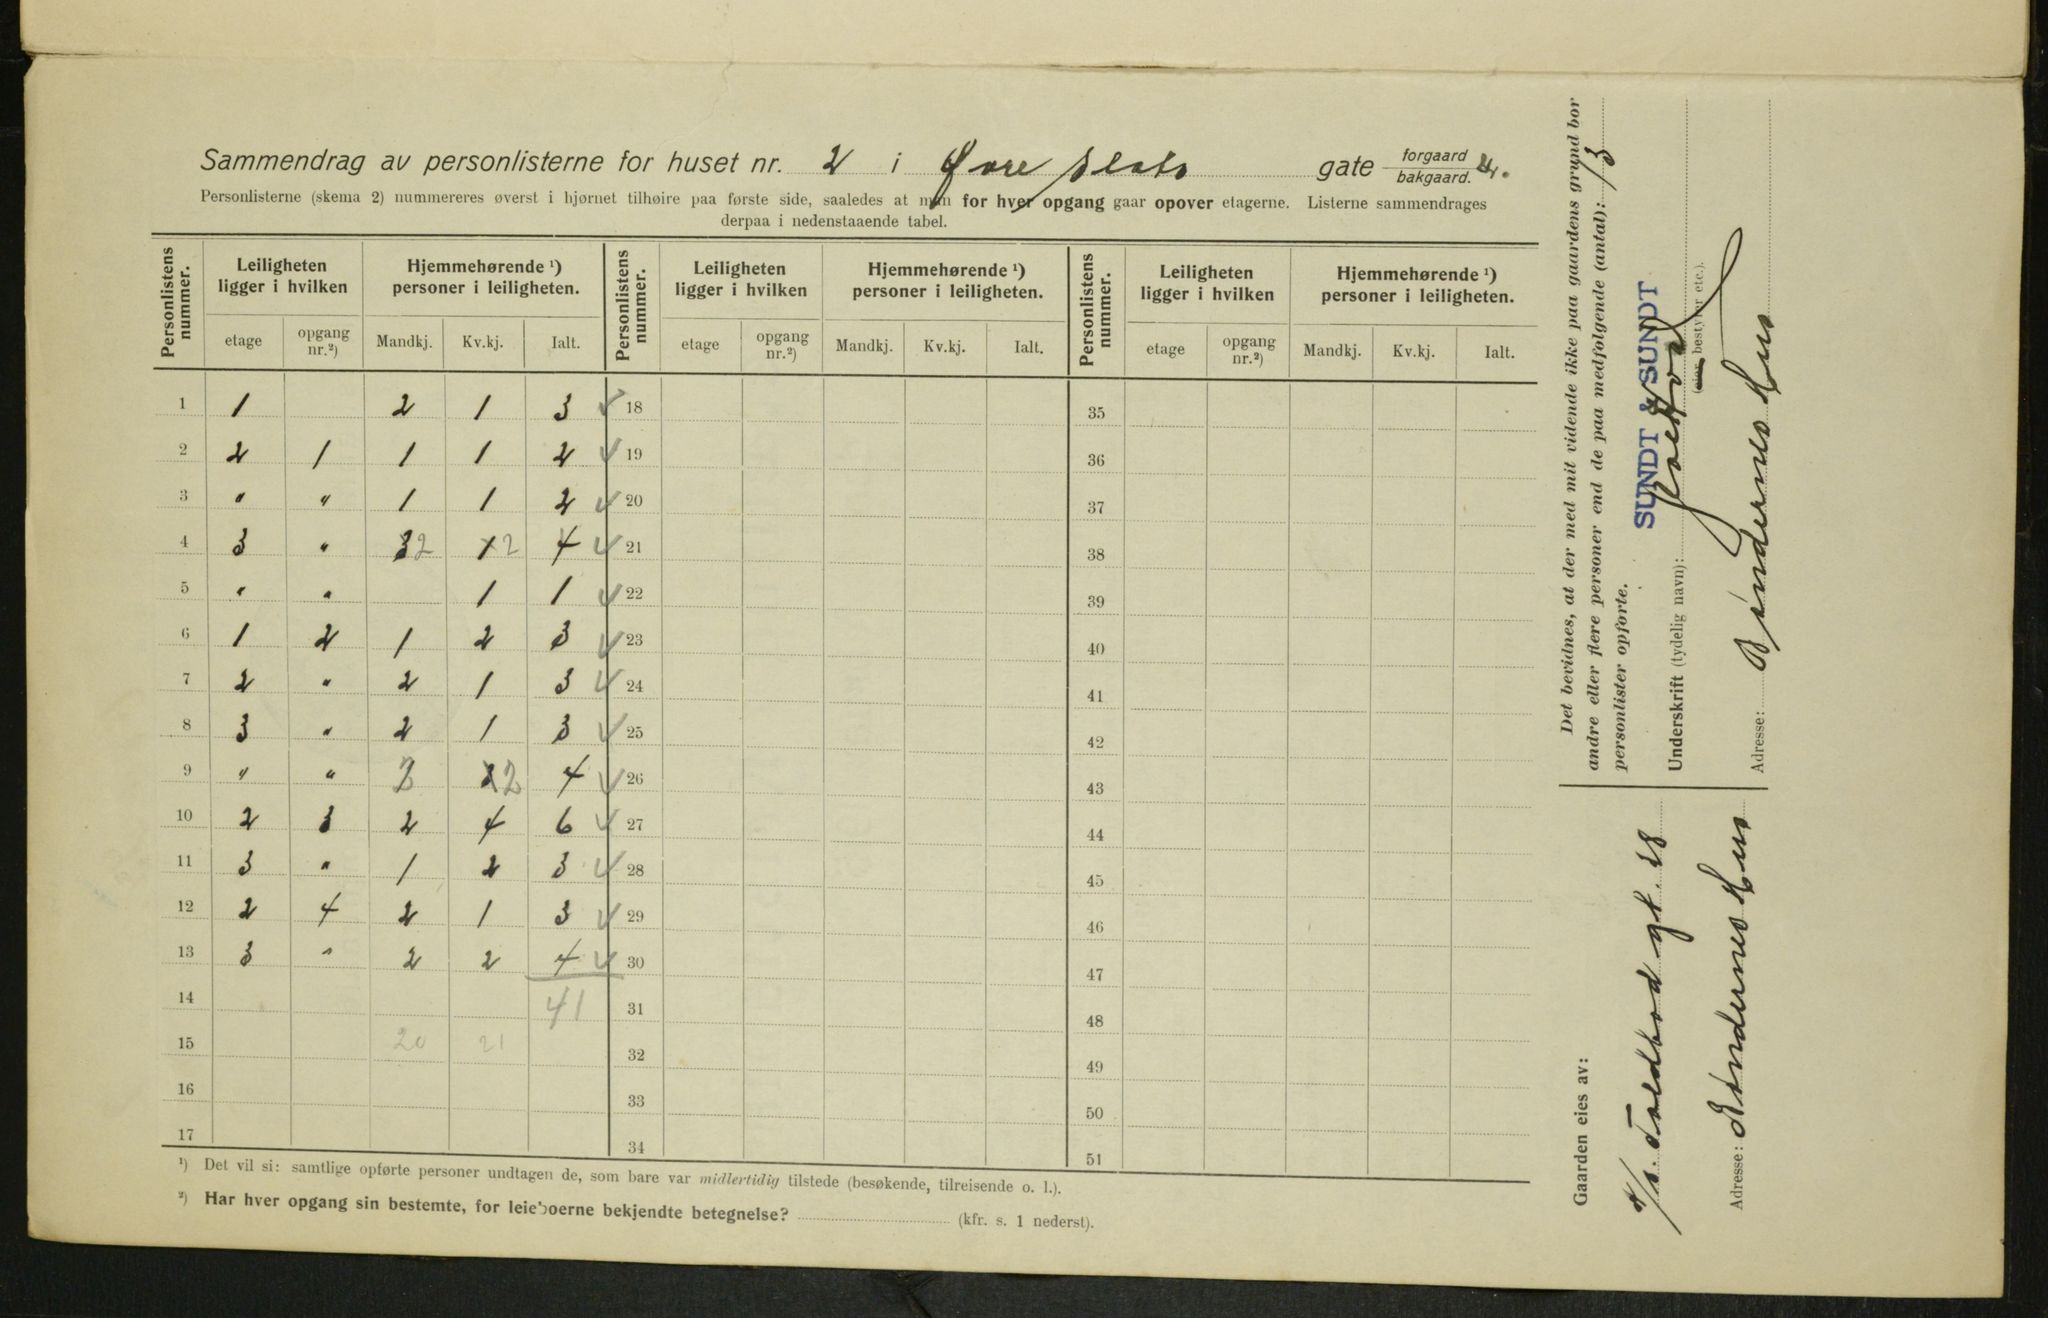 Sammendrag av personlisterne for huset nr. 2 i Øvre Slots gate forgaard / bakgaard.
Personlisterne (skema 2) nummereres øverst i hjørnet tilhøire paa første side, saaledes at man for hver opgang gaar opover etagerne. Listerne sammendrages
derpaa i nedenstaaende tabel.
Personlistens nummer. Leiligheten ligger i hvilken Hjemmehørende ¹) personer i leiligheten. Personlistens nummer. Leiligheten ligger i hvilken Hjemmehørende ¹) personer i leiligheten. Personlistens nummer. Leiligheten ligger i hvilken Hjemmehørende ¹) personer i leiligheten.
etage opgang nr.²) Mandkj. Kv.kj. Ialt. etage opgang nr.²) Mandkj. Kv.kj. Ialt. etage opgang nr.²) Mandkj. Kv.kj. Ialt.
1 1 2 1 3 ✓ 18 35
2 2 1 1 1 2 ✓ 19 36
3 " " 1 1 2 ✓ 20 37
4 3 " 3 2 1 2 4 ✓ 21 38
5 " " 1 1 ✓ 22 39
6 1 2 1 2 3 ✓ 23 40
7 2 " 2 1 3 ✓ 24 41
8 3 " 2 1 3 ✓ 25 42
9 " " 2 2 4 ✓ 26 43
10 2 3 2 4 6 ✓ 27 44
11 3 " 1 2 3 ✓ 28 45
12 2 4 2 1 3 ✓ 29 46
13 3 " 2 2 4 ✓ 30 47
14 41 31 48
15 20 21 32 49
16 33 50
17 34 51
¹) Det vil si: samtlige opførte personer undtagen de, som bare var midlertidig tilstede (besøkende, tilreisende o. l.).
²) Har hver opgang sin bestemte, for leieboerne bekjendte betegnelse? (kfr. s. 1 nederst).
Det bevidnes, at der med mit vidende ikke paa gaardens grund bor
andre eller flere personer end de paa medfølgende (antal): 13
personlister opførte.
SUNDT & SUNDT
Underskrift (tydelig navn):
(eier, bestyrer etc.).
Adresse: Søndernes Hus
Gaarden eies av:
A/S. Toldbod gt. 28
Adresse: Søndernes Hus